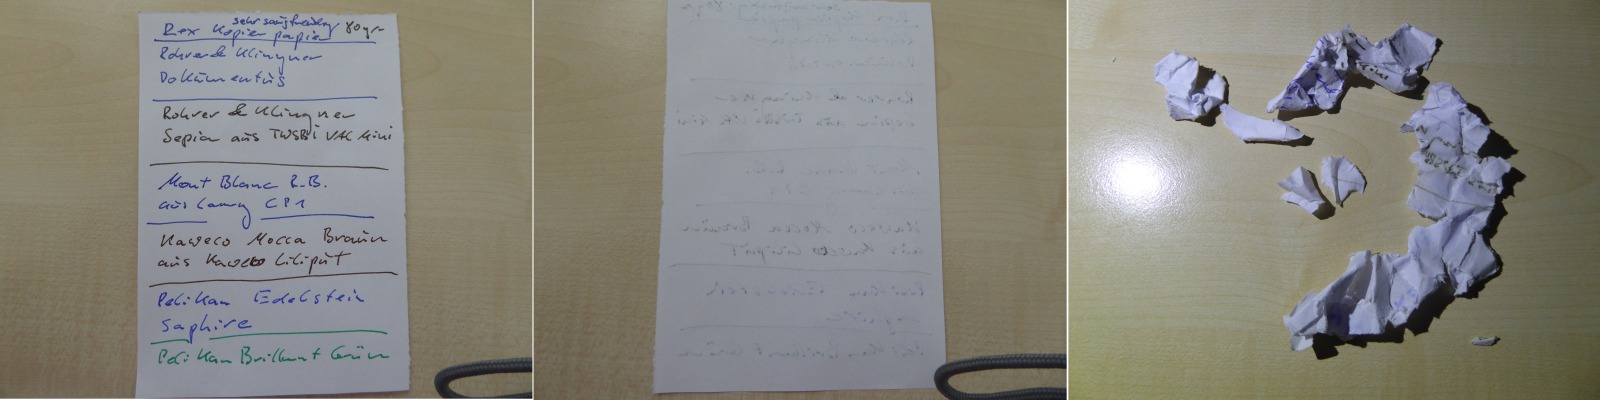 sehr saugfreudig
Rex Kopierpapier 80gr
Rohrer & Klingner
Dokumentus
Rohrer & Klingner
Sepia aus TWSBI VAC Mini
Mont Blanc R.B.
aus Lamy CP1
Kaweco Mocca Braun
aus Kaweco Liliput
Pelikan Edelstein
Saphire
Pelikan Brillant Grün